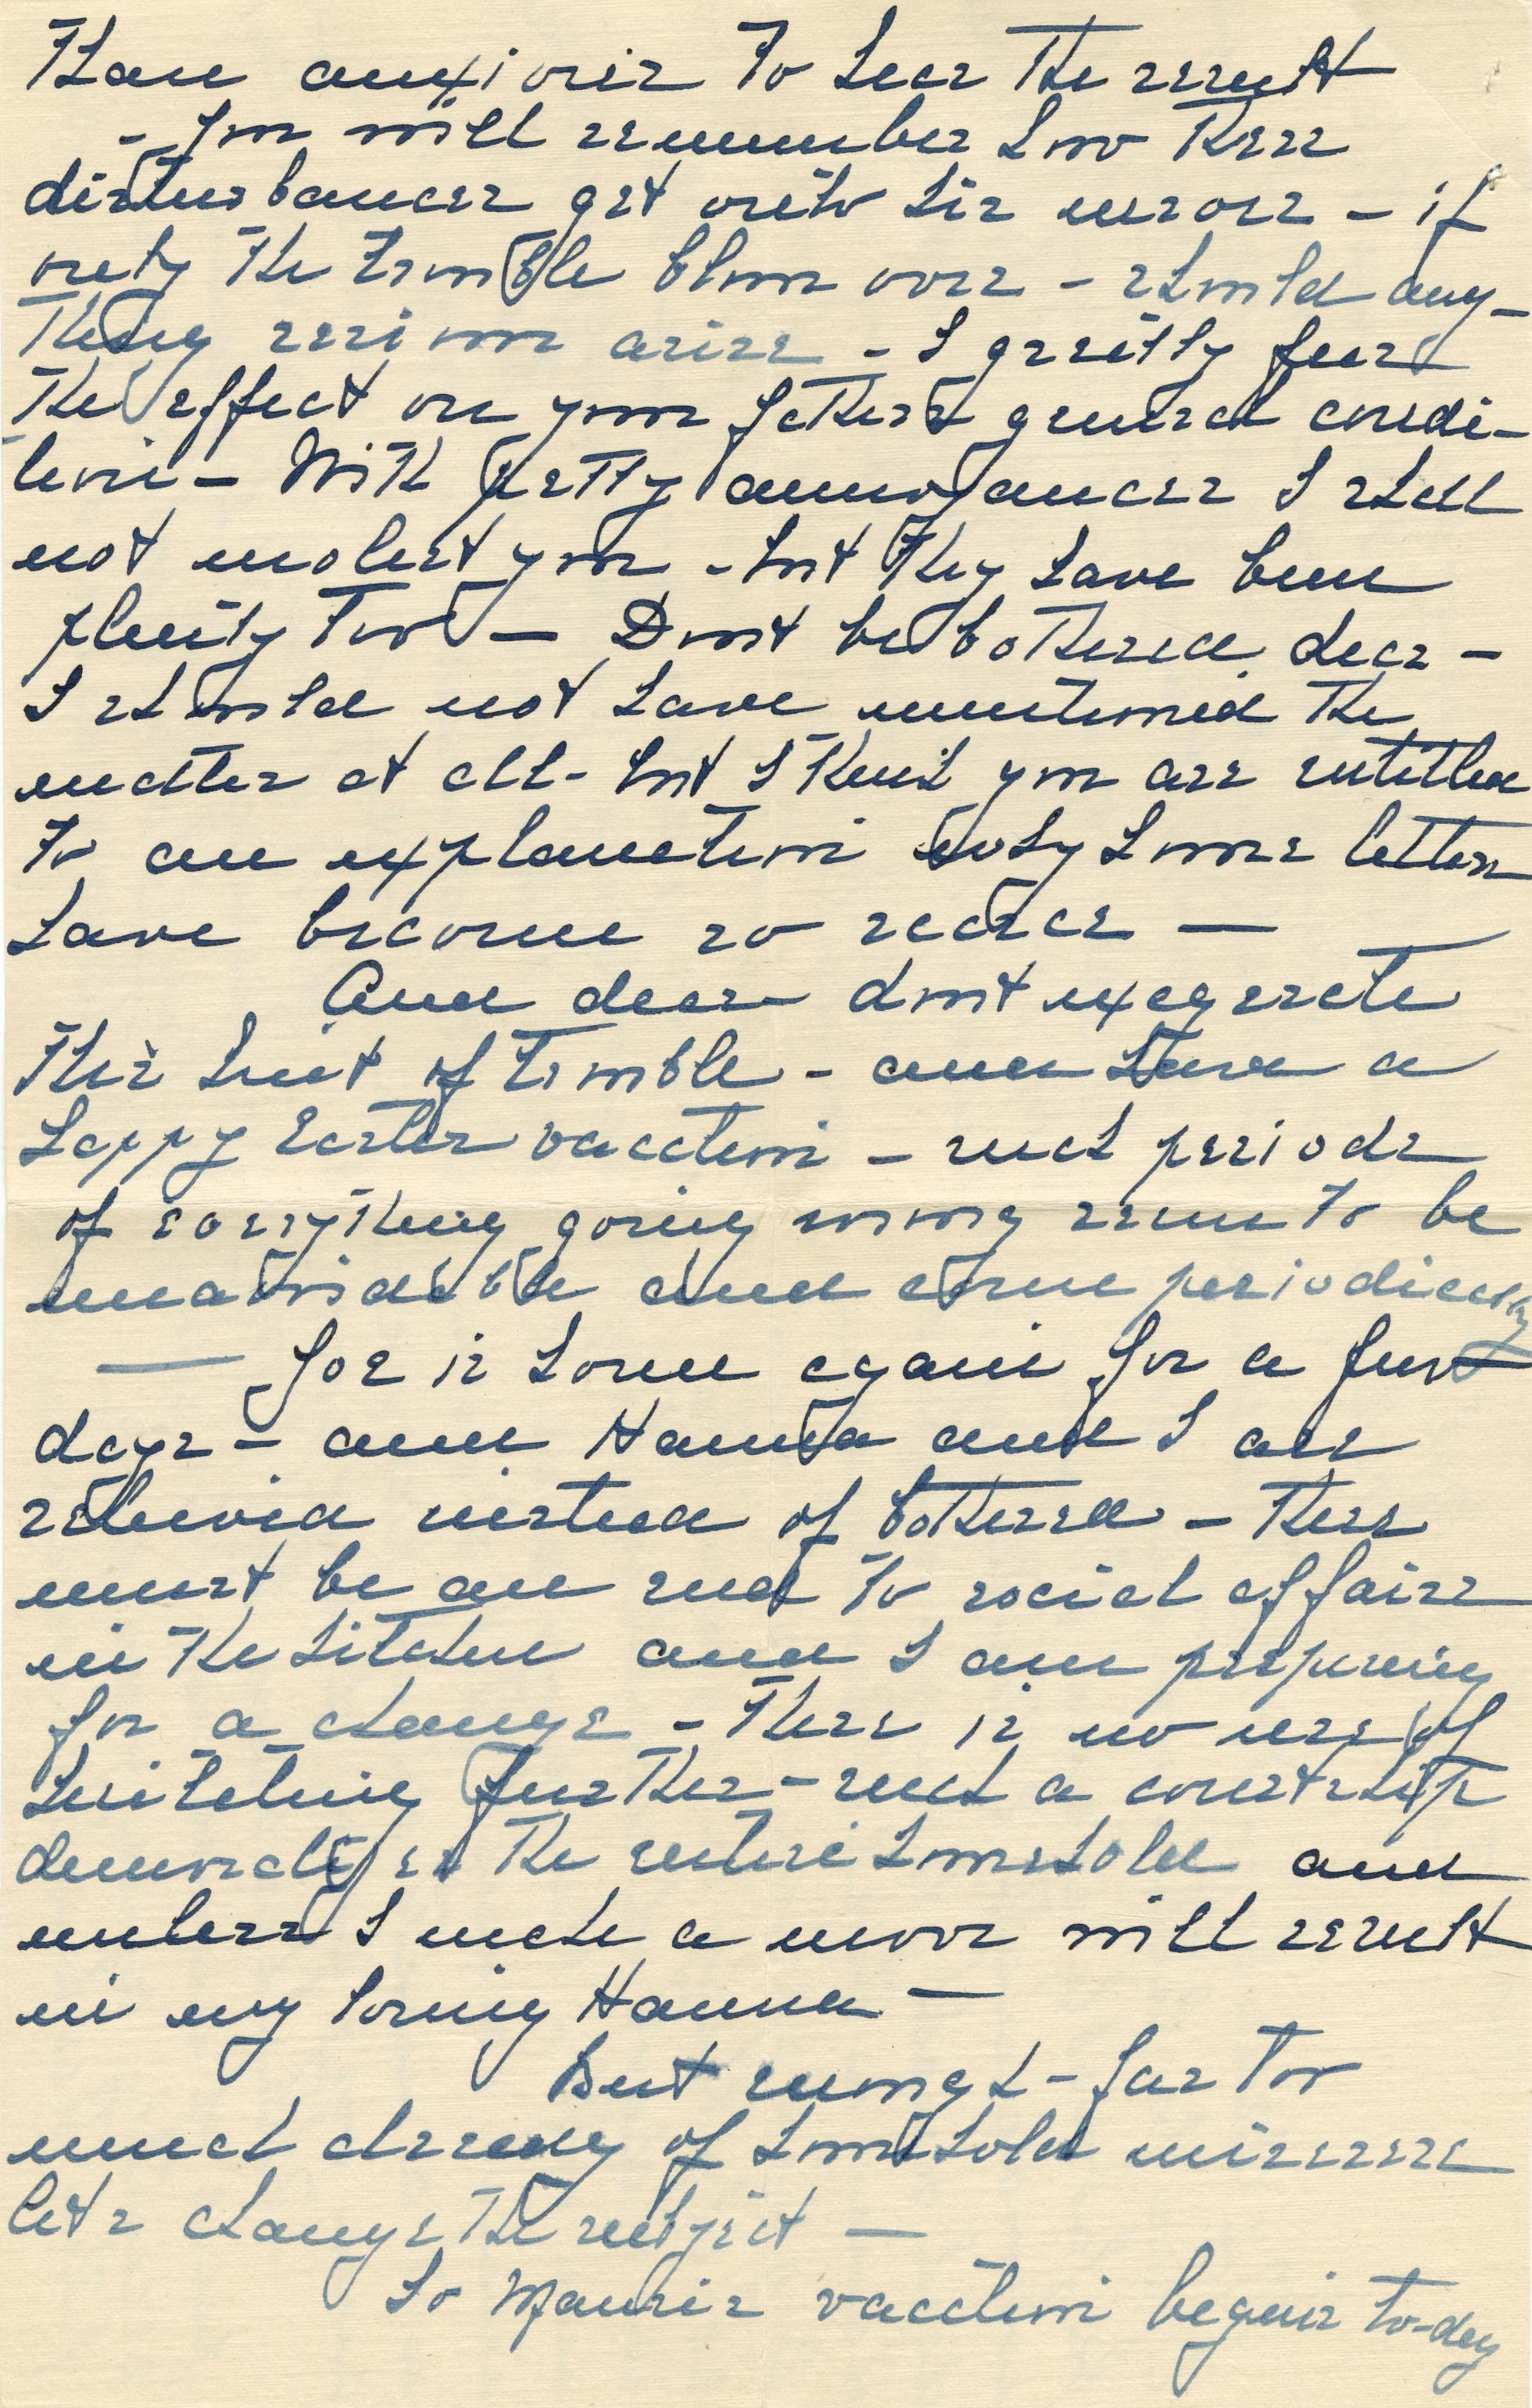 than anxious to hear the result
- You will remember how these
disturbances get onto his nerves - if
only the trouble blows over - should any-
thing serious arise - I greatly fear
the effect on your fathers general condi-
tion - With petty annoyances I shall
not molest you - but they have been
plenty too - Dont be bothered dear -
I should not have mentioned the
matter at all - but I think you are entitled
to an explanation why home letters
have become so scarce -
And dear dont exagerate
this hint of trouble - and have a
happy Easter vacation - such periods
of everything going wrong seem to be
unavoidable and come periodically
- Joe is home again for a few
days - and Hanna and I are
relieved instead of bothered - there
must be an end to social affairs
in the kitchen and I am preparing
for a change - There is no use of
hesitating further - such a courtship
demoralizes the entire household and
unless I make a move will result
in my losing Hanna -
But enough - far too
much already of household miseries
let's change the subject -
So Mausis vacation begins to-day